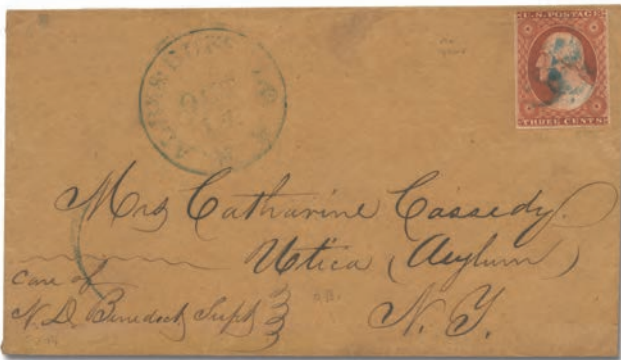 U.S. POSTAGE
THREE CENTS
OCT
Mrs Catharine Cassedy.
Utica (Asylum)
care of
N. D. Benedict Supt
N. Y.